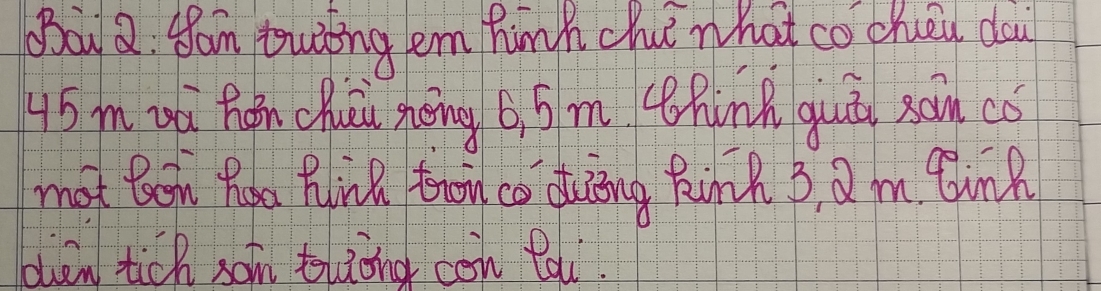 Bài 2: Sân trường em hình chữ nhật có chiều dài
45 m và hơn chiều rộng 6,5 m. Chính giữa sân có
một bồn hoa hình tròn có đường kính 3,2 m. Tính
diện tích sân trường còn lại.